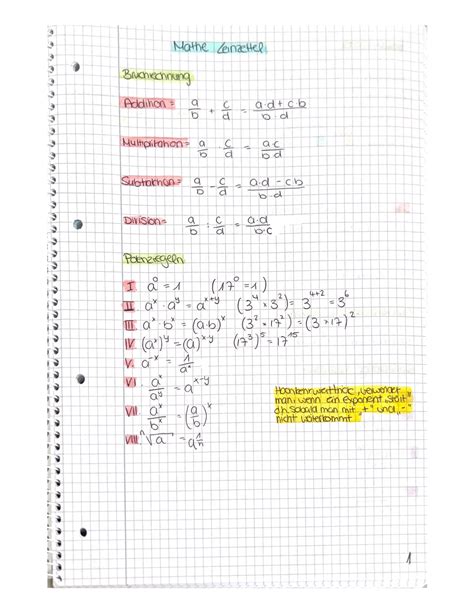 Mathe Lernzettel
Bruchrechnung
Addition = a/b + c/d = a·d + c·b / b·d
Multiplikation = a/b · c/d = ac/bd
Subtraktion = a/b - c/d = a·d - c·b / b·d
Division = a/b : c/d = a·d / b·c
Potenzregeln
I. a⁰ = 1 (17⁰ = 1)
II. aˣ · aʸ = aˣ⁺ʸ (3⁴ × 3²) = 3⁴⁺² = 3⁶
III. aˣ · bˣ = (a·b)ˣ (3² × 17²) = (3 × 17)²
IV. (aˣ)ʸ = (a)ˣ·ʸ (17³)⁵ = 17¹⁵
V. a⁻ˣ = 1/aˣ
VI. aˣ/aʸ = aˣ⁻ʸ
VII. aˣ/bˣ = (a/b)ˣ
VIII. ⁿ√a = a^1/n
verwendet
man wenn ein Exponent
d.h. sobald man mit „+" und „-"
nicht weiterkommt
1